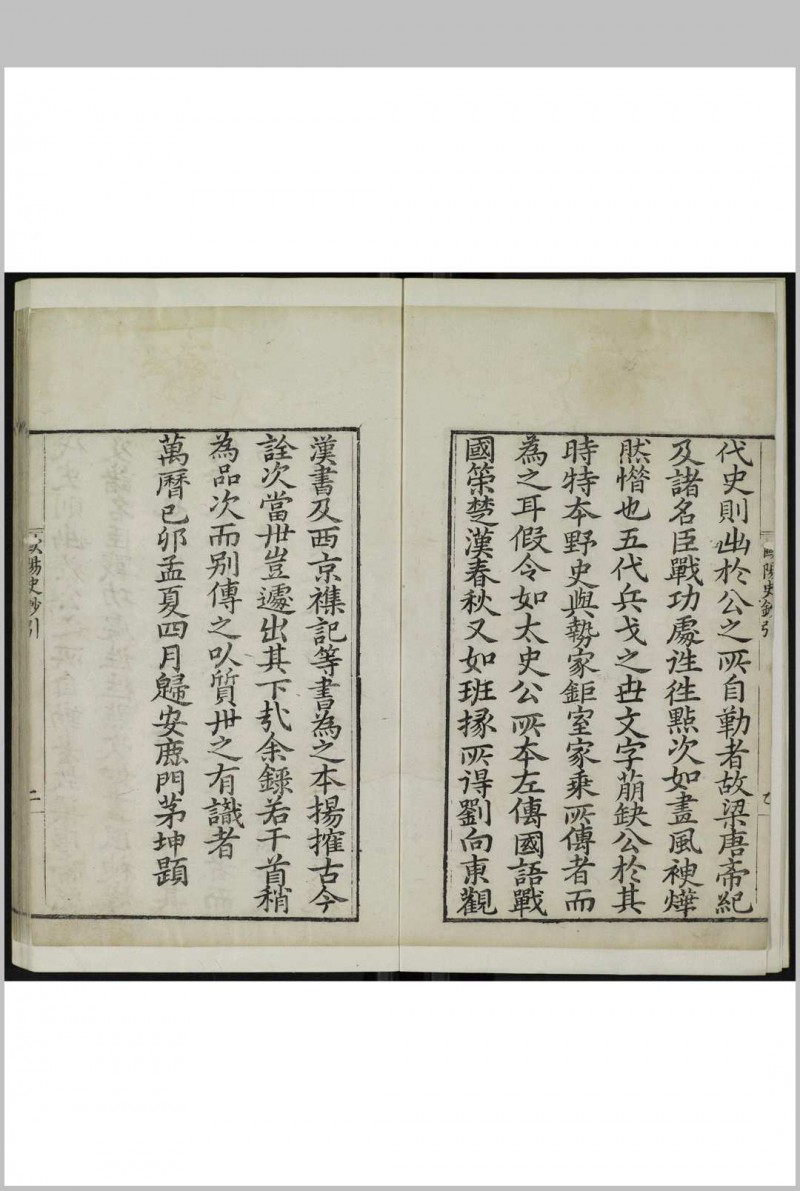 代史則出於公之所自勒者故梁唐帝紀
及諸名臣戰功處徃徃㸃次如畫風神燁
然惜也五代兵戈之世文字崩缺公於其
時特本野史與勢家鉅室家乘所傳者而
為之耳假令如太史公所本左傳國語戰
國策楚漢春秋又如班掾所得劉向東觀
漢書及西京襍記等書為之本揚搉古今
詮次當世豈遽出其下哉余錄若干首稍
為品次而别傳之以質世之有識者
萬曆己卯孟夏四月歸安鹿門茅坤題
陽史鈔引
陽史鈔引
二